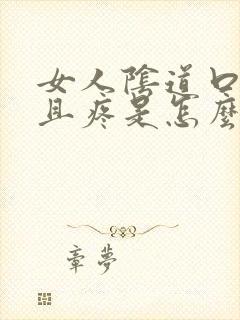 女人陰道口
且疼是怎麼
章夢